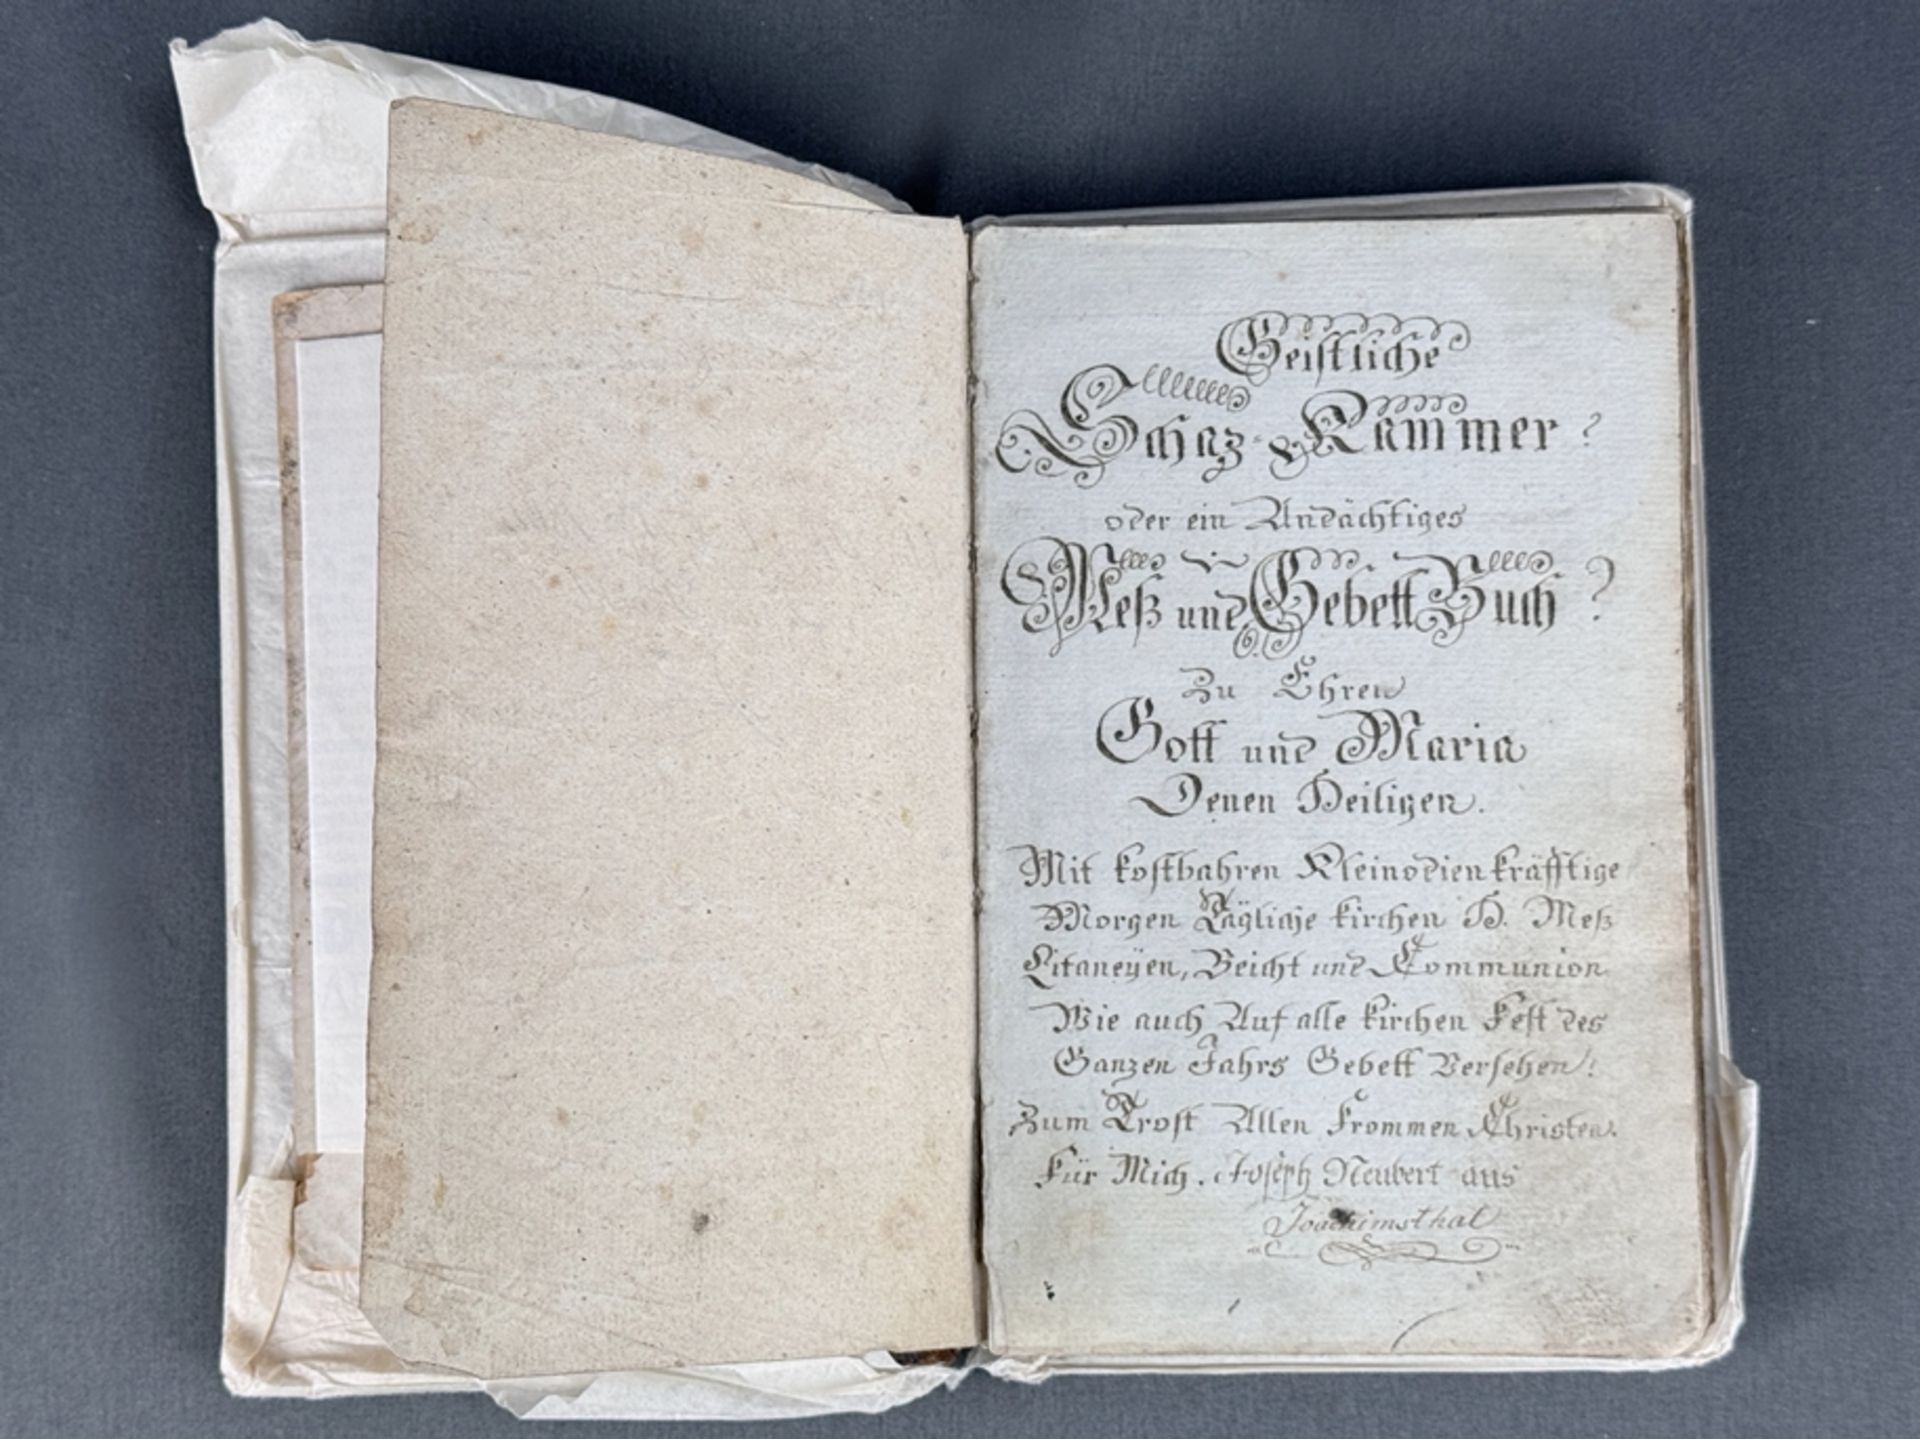 Geistliche
Schaz-Kammer?
oder ein Andächtiges
Meß und Gebett Buch?
Zu Ehren
Gott und Maria
Denen Heiligen.
Mit kostbahren Kleinodien kräfftige
Morgen Tägliche kirchen H. Meß
Litaneÿen, Beicht und Communion
Wie auch Auf alle kirchen Fest des
Ganzen Jahrs Gebett Versehen!
Zum Trost Allen Frommen Christen.
Für Mich. Joseph Neubert aus
Joachimsthal